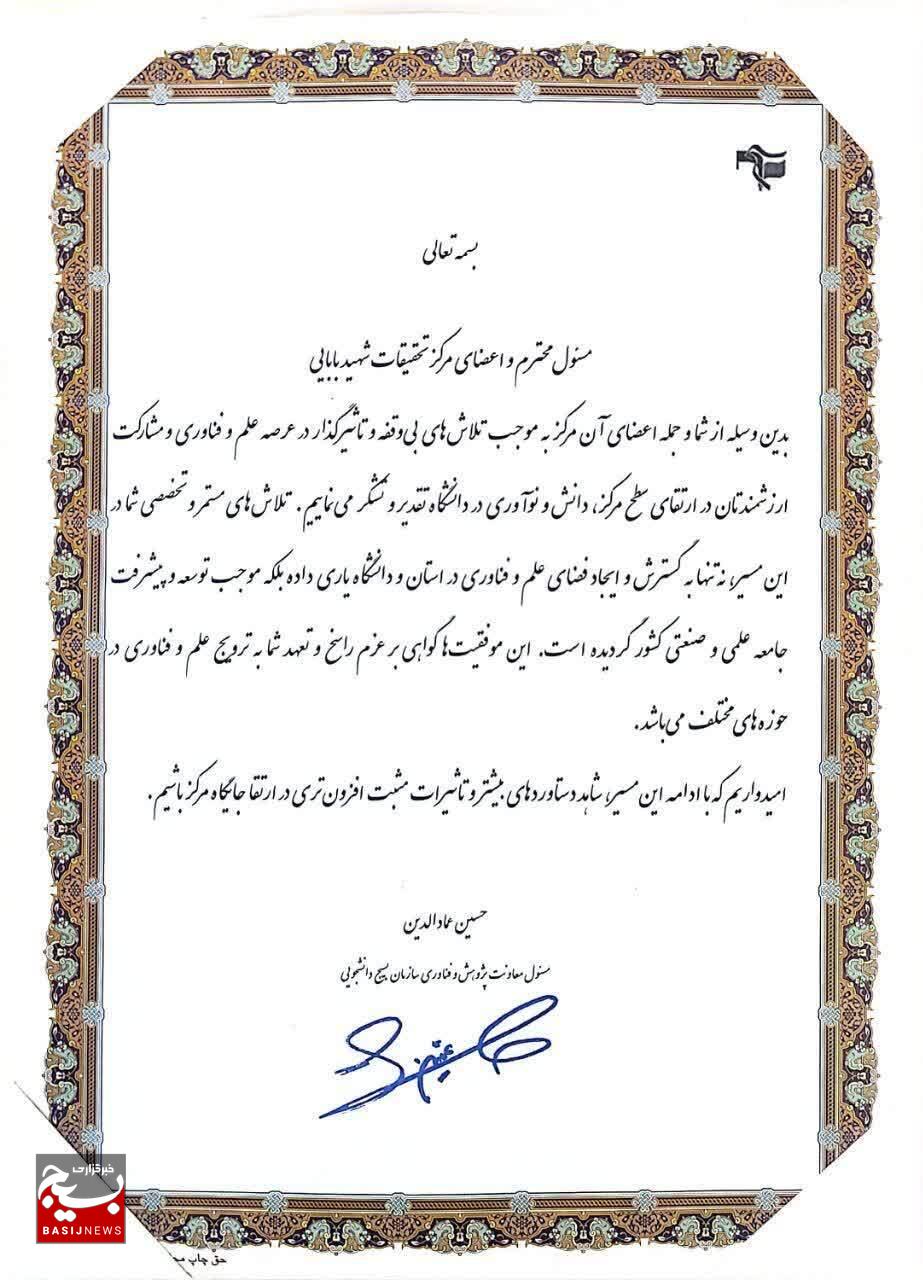 بسمه تعالی
مسئول محترم و اعضای مرکز تحقیقات شهید بابایی
بدین وسیله از شما و جمله اعضای آن مرکز به موجب تلاش‌های بی‌وقفه و تاثیرگذار در عرصه علم و فناوری و مشارکت
ارزشمندتان در ارتقای سطح مرکز، دانش و نوآوری در دانشگاه تقدیر و تشکر می‌نماییم. تلاش‌های مستمر و تخصصی شما در
این مسیر، نه تنها به گسترش و ایجاد فضای علم و فناوری در استان و دانشگاه یاری داده بلکه موجب توسعه و پیشرفت
جامعه علمی و صنعتی کشور گردیده است. این موفقیت‌ها گواهی بر عزم راسخ و تعهد شما به ترویج علم و فناوری در
حوزه های مختلف می‌باشد.
امیدواریم که با ادامه این مسیر، شاهد دستاوردهای بیشتر و تاثیرات مثبت افزون‌تری در ارتقا جایگاه مرکز باشیم.
حسین عمادالدین
مسئول معاونت پژوهش و فناوری سازمان بسیج دانشجویی
خبرگزاری
بسیج
BASIJNEWS
حق چاپ